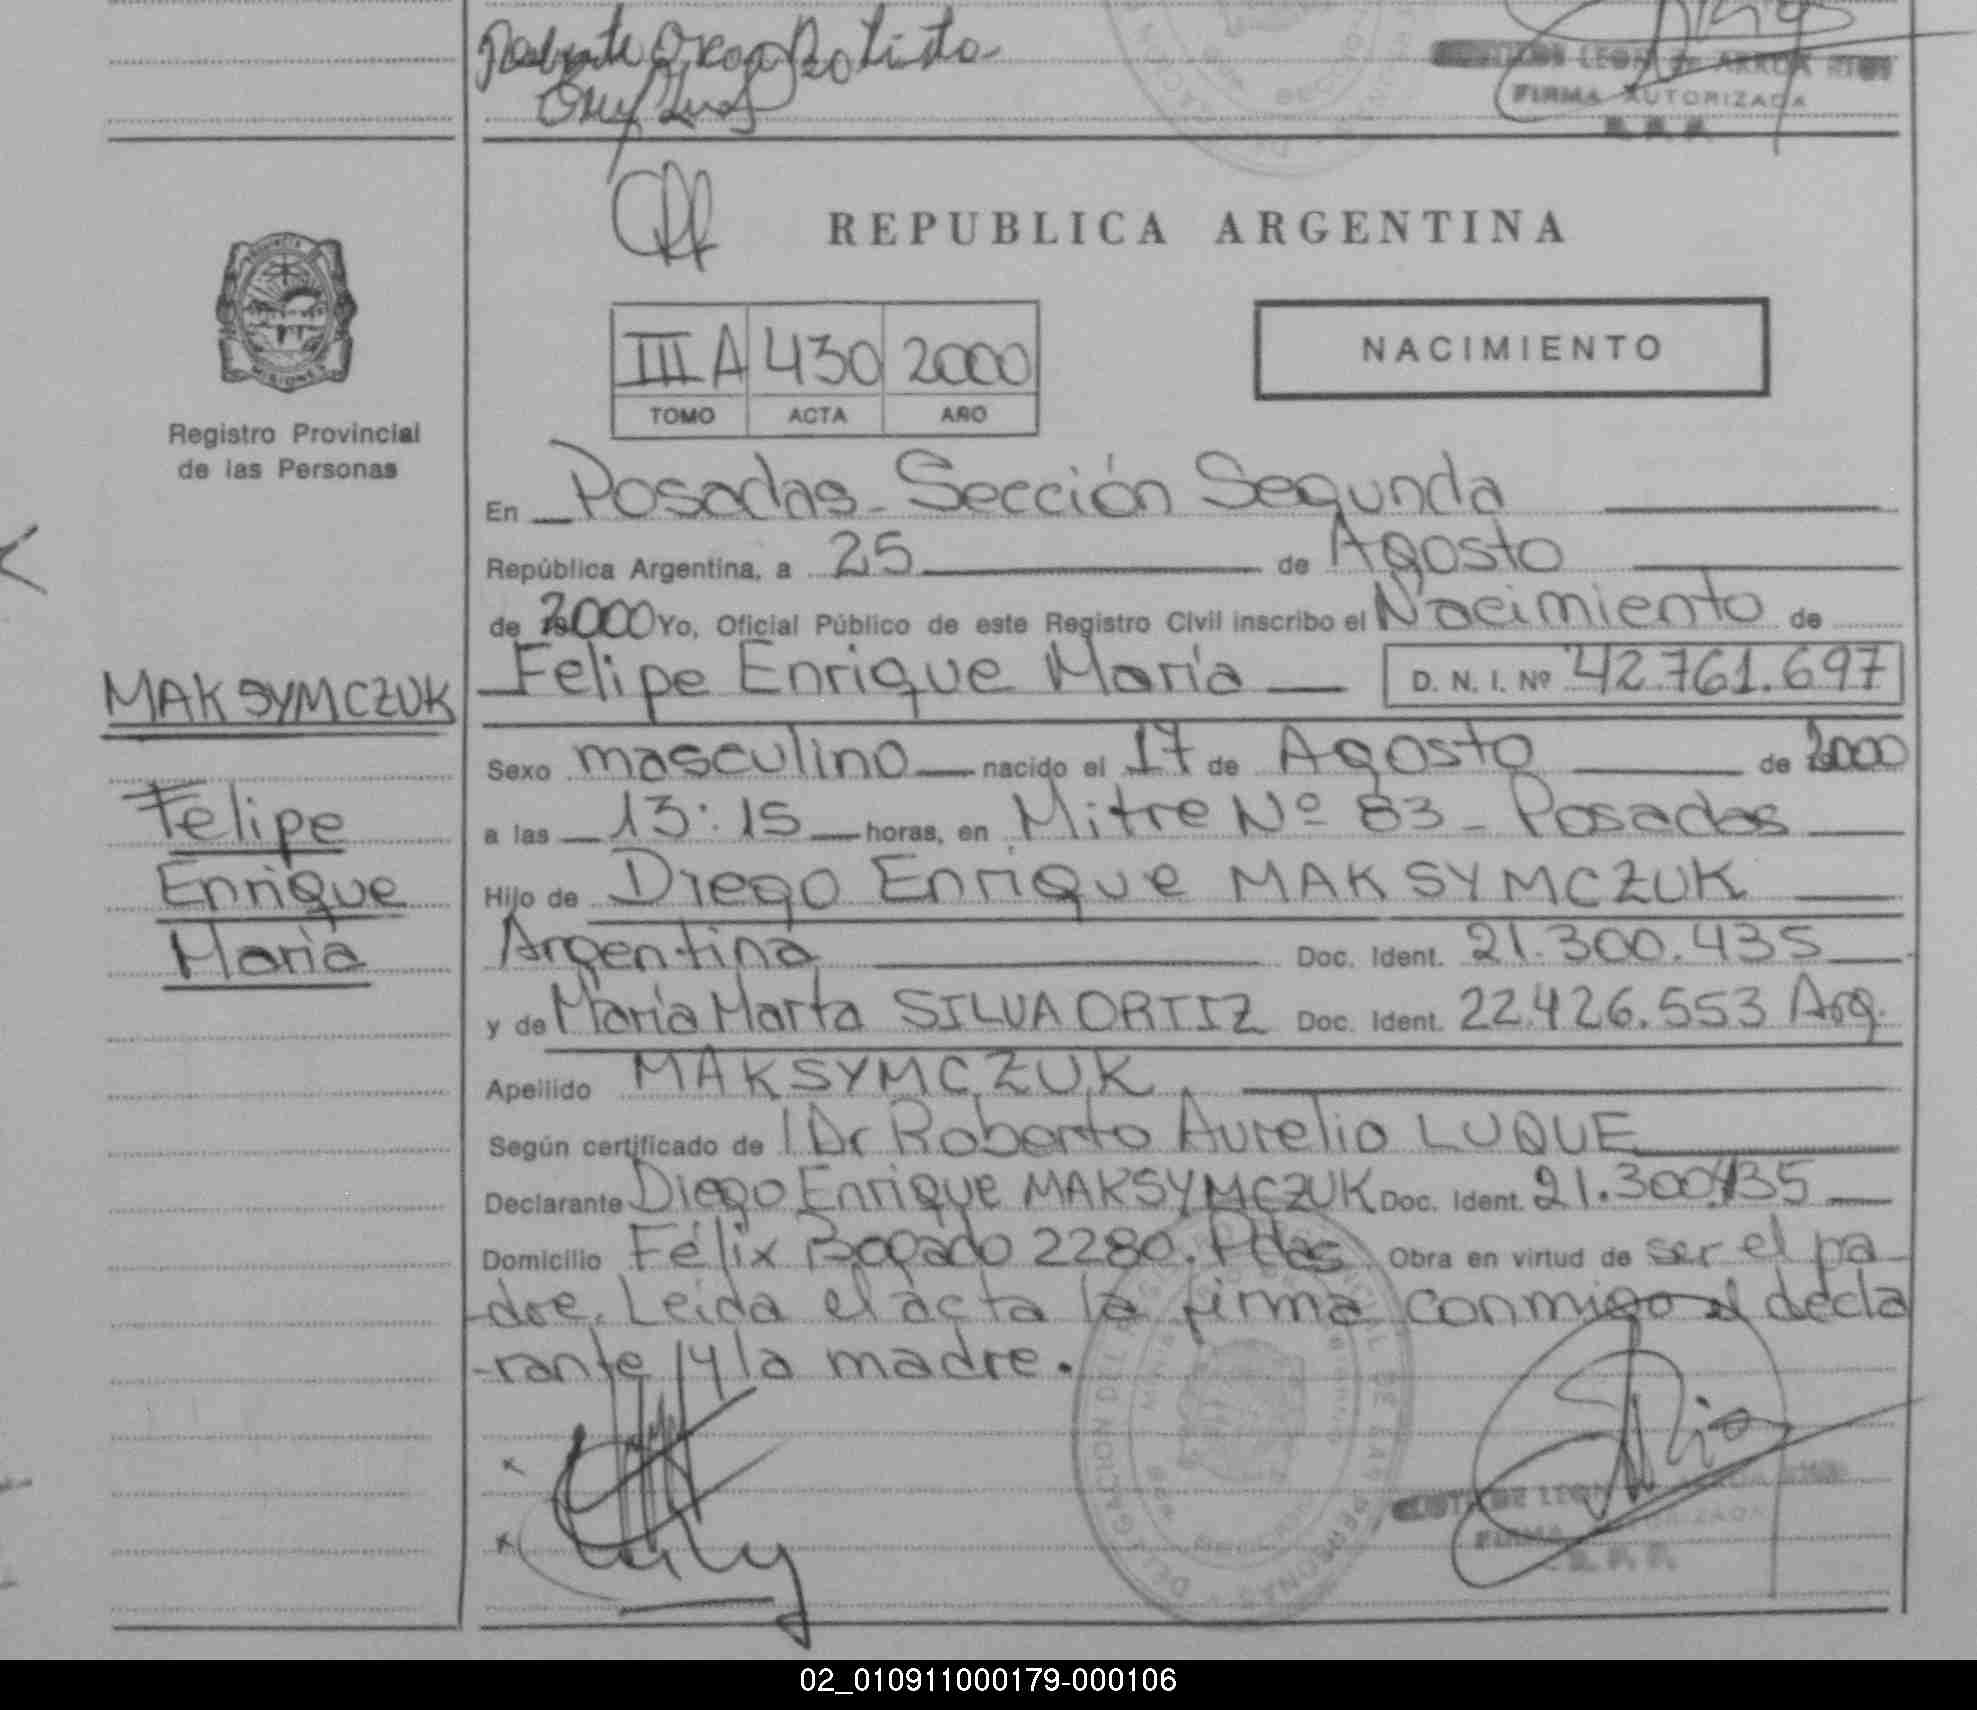 FIRMA AUTORIZADA
REPUBLICA ARGENTINA
PROVINCIA
MISIONES
III A 430 2000
TOMO ACTA AÑO
NACIMIENTO
Registro Provincial
de las Personas
En Posadas - Sección Segunda
República Argentina, a 25 de Agosto
de 2000 Yo, Oficial Público de este Registro Civil inscribo el Nacimiento de
Felipe Enrique María D. N. I. Nº 42.761.697
MAKSYMCZUK
Felipe
Enrique
María
Sexo masculino nacido el 17 de Agosto de 2000
a las 13:15 horas, en Mitre Nº 83 - Posadas
Hijo de Diego Enrique MAKSYMCZUK
Argentina Doc. Ident. 21.300.435
y de María Marta SILVA ORTIZ Doc. Ident. 22.426.553 Arg.
Apellido MAKSYMCZUK
Según certificado de Dr Roberto Aurelio LUQUE
Declarante Diego Enrique MAKSYMCZUK Doc. Ident. 21.300.435
Domicilio Félix Bogado 2280. Pdas Obra en virtud de ser el pa
-dre. Leída el acta la firma conmigo el decla
-rante y la madre.
FIRMA AUTORIZADA
02_010911000179-000106